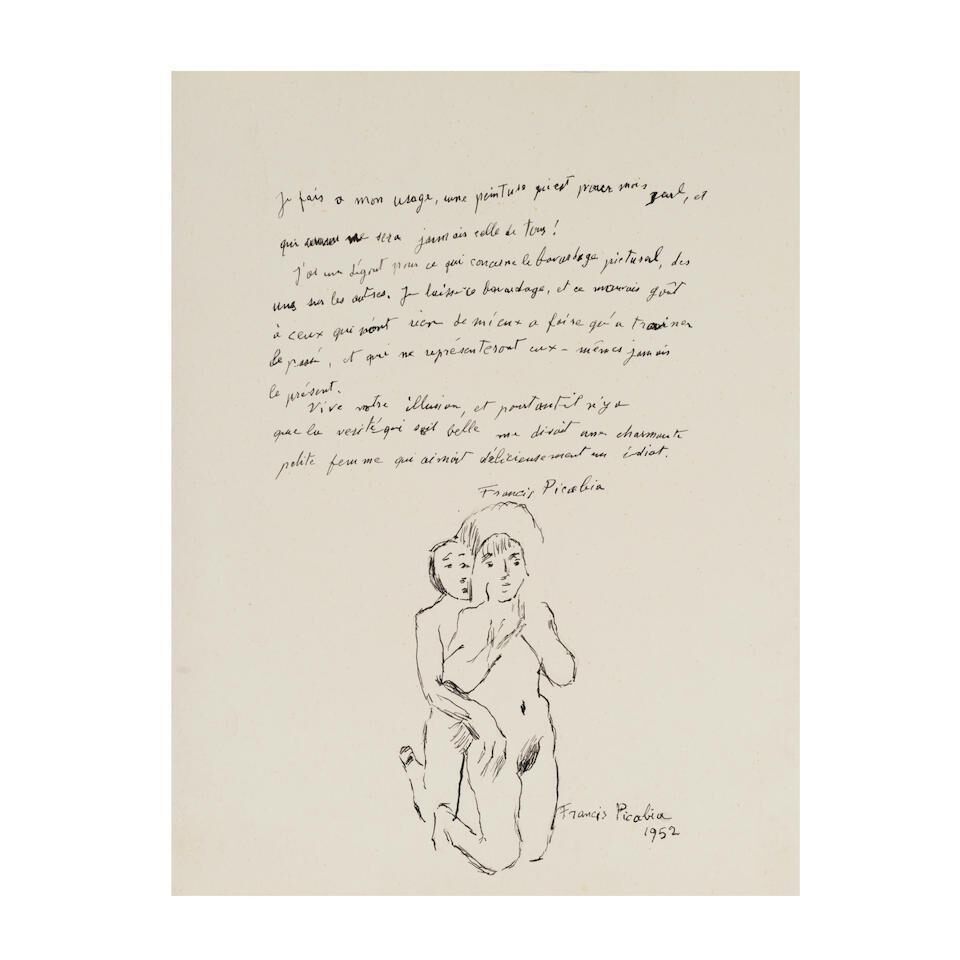 Je fais a mon usage, une peinture qui est pour mois seul, et
qui ne sera jamais celle de tous!
J'ai un dégout pour ce qui concerne le bavardage pictural, des
uns sur les autres. Je laisse ce bavardage, et ce mauvais goût
à ceux qui n'ont rien de mieux a faire qu'a trainer
le passé, et qui ne représenteront eux-mêmes jamais
le présent.
Vive votre illusion, et pourtant il n'y a
que la verité qui soit belle me disait une charmante
petite femme qui aimait délicieusement un idiot.
Francis Picabia
Francis Picabia
1952